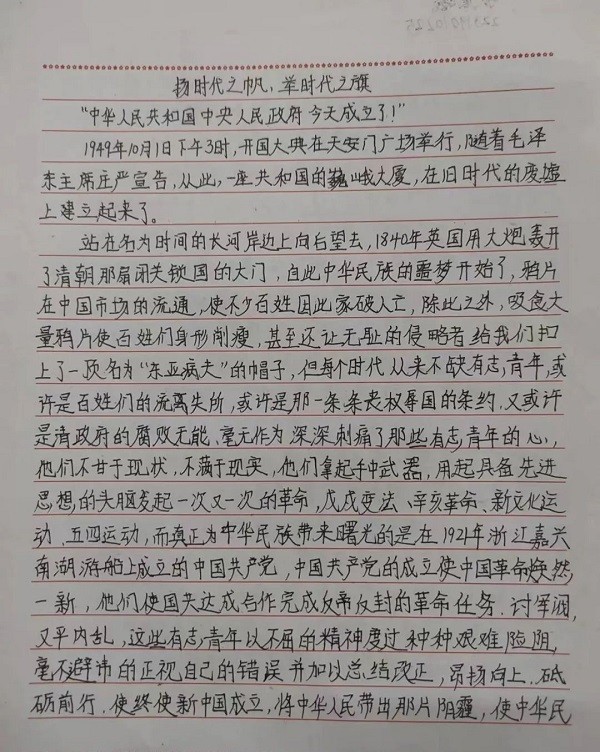 扬时代之帆、举时代之旗
“中华人民共和国中央人民政府今天成立了!”
1949年10月1日下午3时,开国大典在天安门广场举行,随着毛泽
东主席庄严宣告,从此,一座共和国的巍峨大厦,在旧时代的废墟
上建立起来了。
站在名为时间的长河岸边上向后望去,1840年英国用大炮轰开
了清朝那扇闭关锁国的大门,自此中华民族的噩梦开始了,鸦片
在中国市场的流通,使不少百姓因此家破人亡,除此之外,吸食大
量鸦片使百姓们身形削瘦,甚至还让无耻的侵略者给我们扣
上了一顶名为“东亚病夫”的帽子,但每个时代从来不缺有志青年,或
许是百姓们的流离失所,或许是那一条条丧权辱国的条约,又或许
是清政府的腐败无能、毫无作为深深刺痛了那些有志青年的心,
他们不甘于现状,不满于现实,他们拿起手中武器,用起具备先进
思想的头脑发起一次又一次的革命,戊戌变法、辛亥革命、新文化运
动、五四运动,而真正为中华民族带来曙光的是在1921年浙江嘉兴
南湖游船上成立的中国共产党,中国共产党的成立使中国革命焕然
一新,他们使国共达成合作完成反帝反封的革命任务.讨军阀,
又平内乱,这些有志青年以不屈的精神度过种种艰难险阻,
毫不避讳的正视自己的错误并加以总结改正,昂扬向上.砥
砺前行.使终使新中国成立,将中华人民带出那片阴霾,使中华民